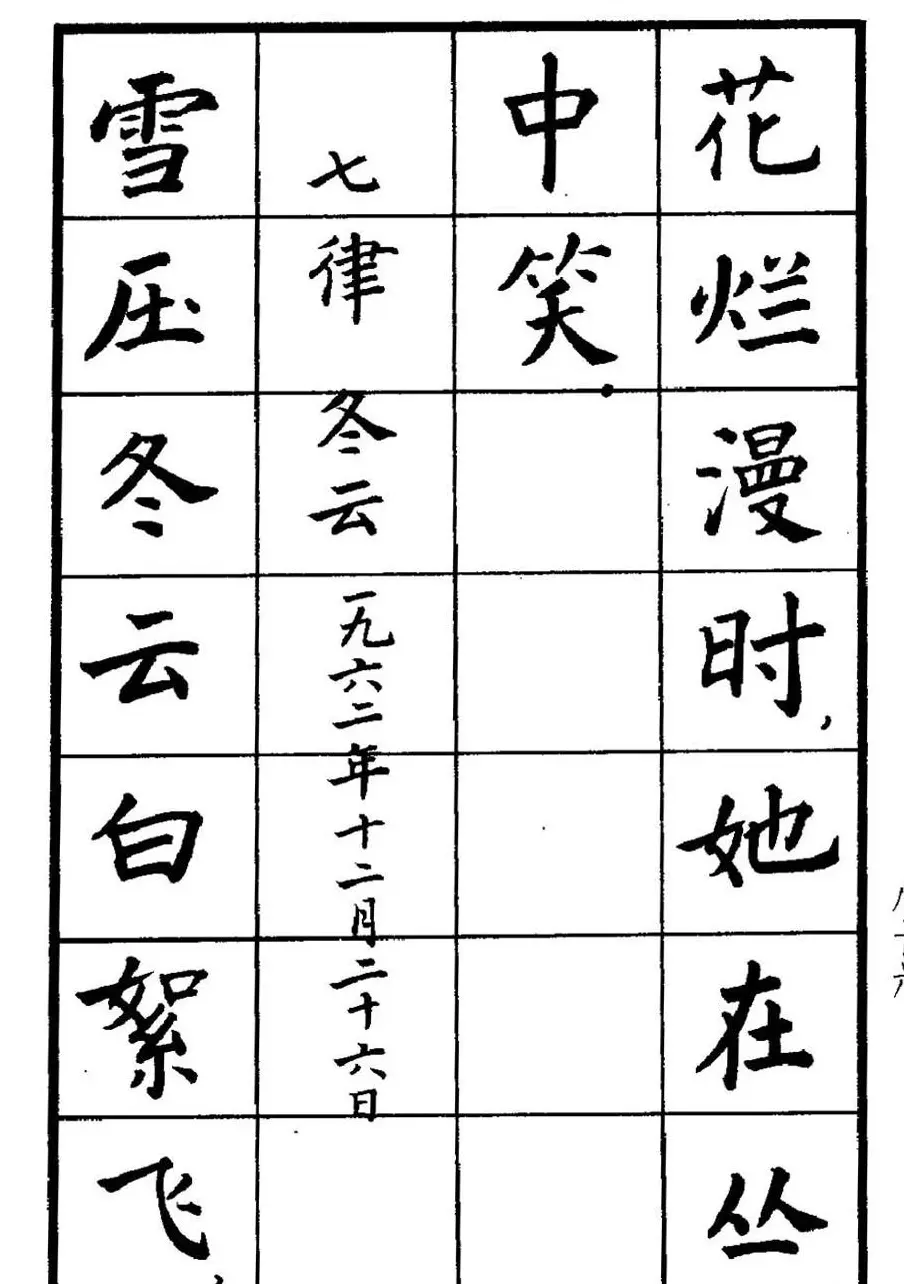 花烂漫时，她在丛
中笑。
七律 冬云 一九六二年十二月二十六日
雪压冬云白絮飞，